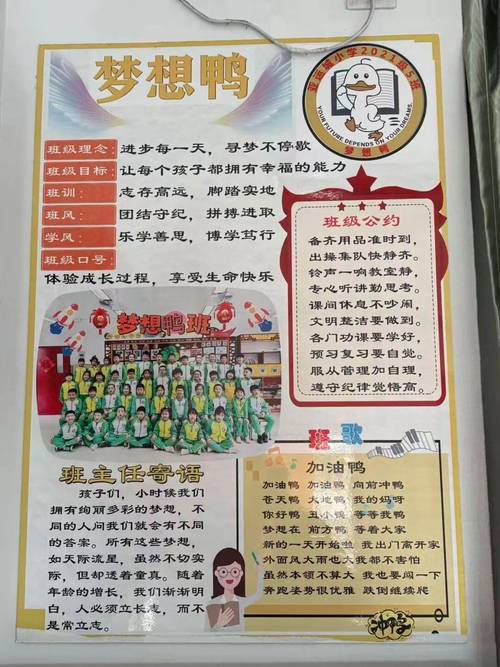 梦想鸭
亚运城小学2021级5班
YOUR FUTURE DEPENDS ON YOUR DREAMS.
梦想鸭
班级理念：进步每一天，寻梦不停歇
班级目标：让每个孩子都拥有幸福的能力
班训：志存高远，脚踏实地
班风：团结守纪，拼搏进取
学风：乐学善思，博学笃行
班级口号：
体验成长过程，享受生命快乐
班级公约
备齐用品准时到，
出操集队快静齐。
铃声一响教室静，
专心听讲勤思考。
课间休息不吵闹，
文明整洁要做到。
各门功课要学好，
预习复习要自觉。
服从管理加自理，
遵守纪律觉悟高。
梦想鸭班
班主任寄语
孩子们，小时候我们
拥有绚丽多彩的梦想，不
同的人问我们就会有不同
的答案。所有这些梦想，
如天际流星，虽然不切实
际，但却透着童真。随着
年龄的增长，我们渐渐明
白，人必须立长志，而不
是常立志。
班歌
加油鸭
加油鸭 加油鸭 向前冲鸭
苍天鸭 大地鸭 我的妈呀
你好鸭 丑小鸭 等等我鸭
梦想在 前方鸭 等着大家
新的一天开始啦 我出门离开家
外面风大雨也大我都不害怕
虽然本领不算大 我也要闯一下
奔跑姿势很优雅 跌倒继续爬
冲鸭